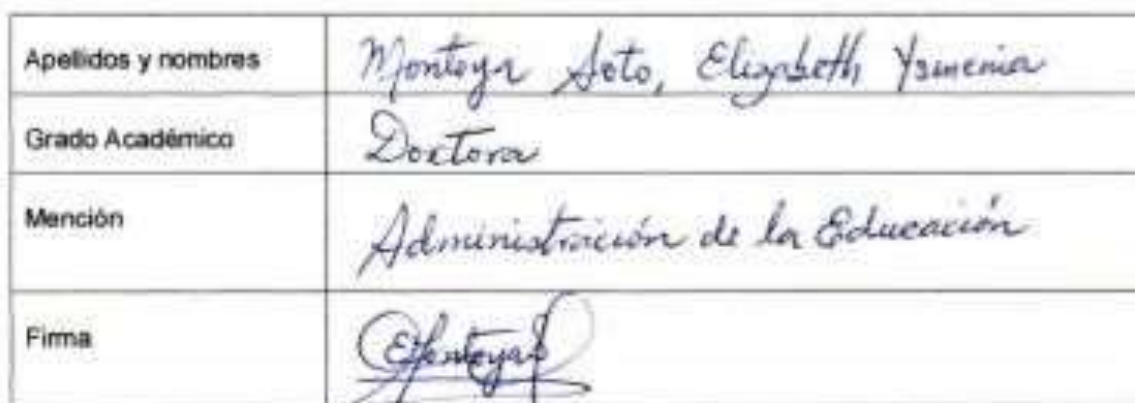 Apellidos y nombres Montoya Soto, Elizabeth Ysmenia
Grado Académico Doctora
Mención Administración de la Educación
Firma EMontoyaS